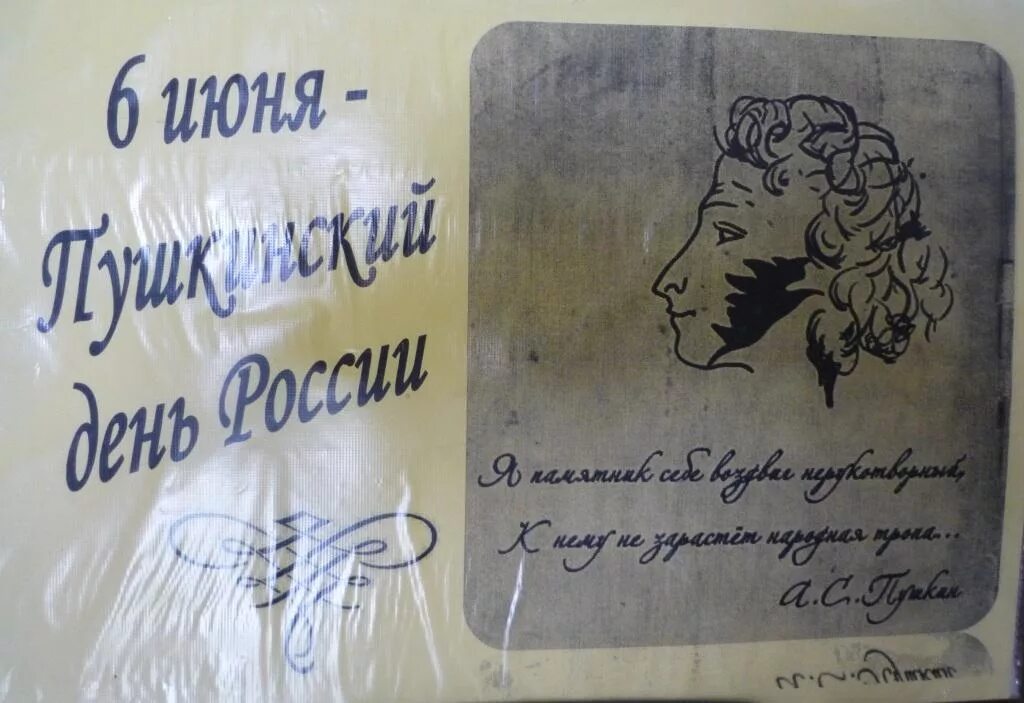 6 июня -
Пушкинский
день России
Я памятник себе воздвиг нерукотворный,
К нему не зарастёт народная тропа...
А.С.Пушкин